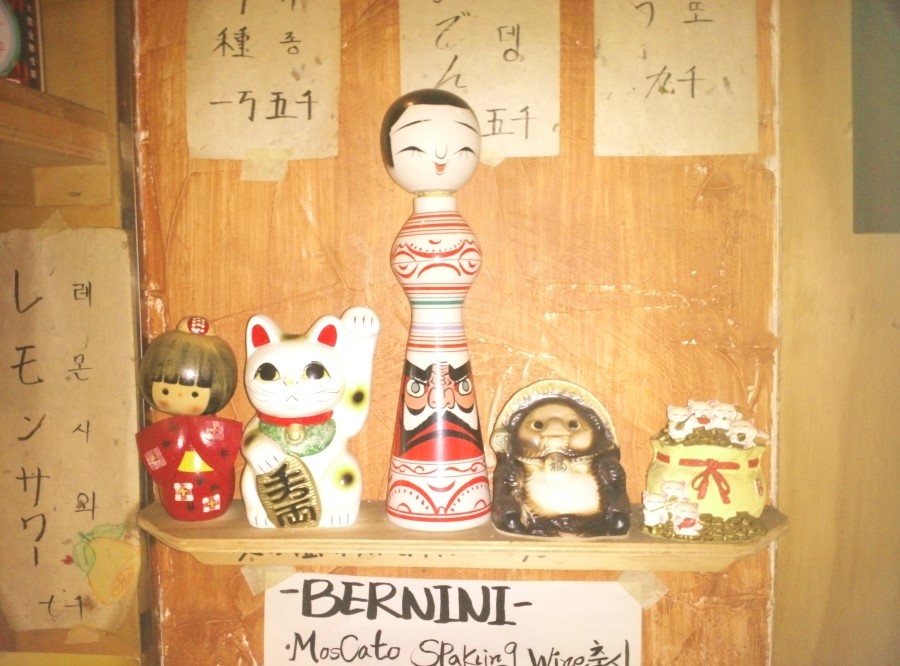 種 종
一万五千
でん
뎅
五千
또
九千
レモンサワー
레몬사와
七千
福
-BERNINI-
·MosCato SPakling Wine출시